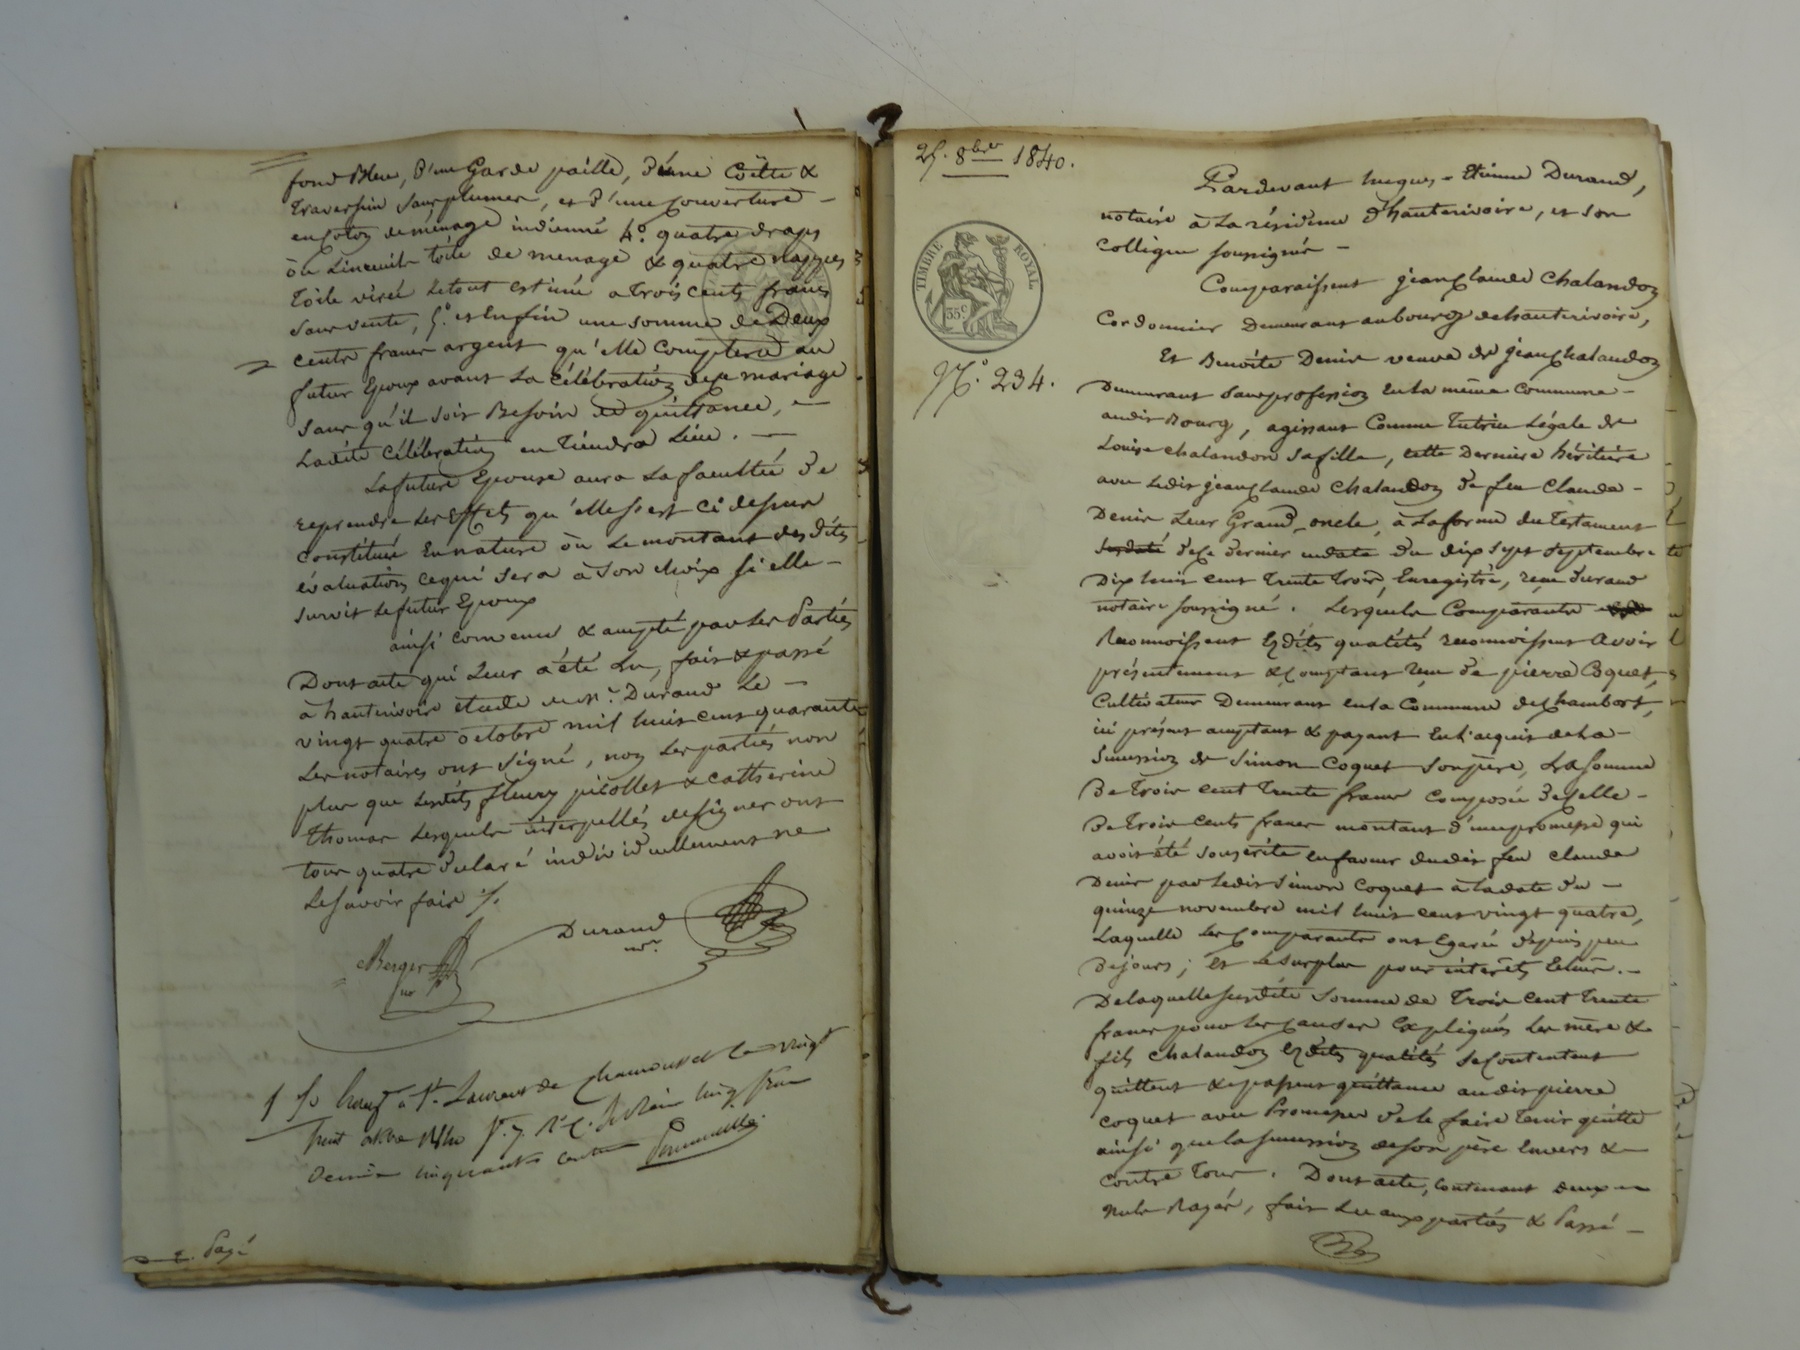 fond Bleu, d'une Garde paille, d'une Coëtte &
traversin sans plumes, et d'une couverture
en coton de ménage indienne 4.° quatre draps
ôu Linceuils toile de menage & quatre nappes
toile virée le tout estimé a trois cents francs
sans vente, 5.° et Enfin une somme de Deux
cents francs argent qu'elle comptera au
futur Epoux avant La célébration de ce mariage
sans qu'il soit Besoin de quittance,
Ladite célébration en tiendra Lieu.
La future Epouse aura La faculté de
reprendre Les Effets qu'elle s'est ci dessus
constitués En nature ôu Le montant des dites
évaluations ce qui sera à Son choix si elle
survit Le futur Epoux
ainsi convenu & accepté par Les Parties
Dont acte qui Leur a été Lu, fait & passé
à hauterivoire étude de Mr. Durand Le
vingt quatre octobre mil huit cent quarante
Les notaires ont signé, non Les parties non
plus que Lesdits fleury picollet & catherine
thomas Lesquels interpellés de signer ont
tous quatre déclaré individuellement ne
Le Savoir faire ./.
Durand
nre
Berger
nre
à St. Laurent de Chamousset le vingt
cinq francs
cinquante centimes
2. Pagé
25. 8bre 1840.
TIMBRE ROYAL
35 c
N.° 234.
Pardevant hugues-Etienne Durand,
notaire à La résidence d'hauterivoire, et son
collègue soussignés
Comparaissent jean Claude Chalandon
Cordonnier Demeurant au bourg de hauterivoire,
Et Benoîte Denis veuve de jean Chalandon
Demeurant sans profession en La même commune
au dit Bourg, agissant Comme Tutrice Légale de
Louise chalandon sa fille, cette Dernière héritière
avec Ledit jean Claude Chalandon de feu Claude
Denis Leur Grand-oncle, à La forme du testament
susdaté de ce dernier en date du dix sept septembre
Dix huit cent trente trois, Enregistré, reçu Durand
notaire soussigné. Lesquels Comparants
Reconnoissent Esdites qualités reconnoissent avoir
présentement & comptant reçu de pierre Coquet,
Cultivateur Demeurant en La Commune de Chambost,
ici présent acceptant & payant En L'acquit de La
Succession de Simon Coquet son père, La somme
De trois cent trente francs composée de celle
De trois cents francs montant d'une promesse qui
avoit été souscrite en faveur dudit feu Claude
Denis par Ledit Simon Coquet à La date du
quinze novembre mil huit cent vingt quatre,
Laquelle Les comparants ont Egarée depuis peu
de jours; Et Le surplus pour intérêts Echus.
De laquelle susdite somme de trois cent trente
francs pour Les causes Expliquées Les mère &
fils Chalandon Esdites qualités se contentent
quittent & passent quittance au dit pierre
Coquet avec Promesse de Le faire tenir quitte
ainsi que La succession de son père Envers &
contre tous. Dont acte, contenant deux
nuls Rayés, fait Lu aux parties & Passé